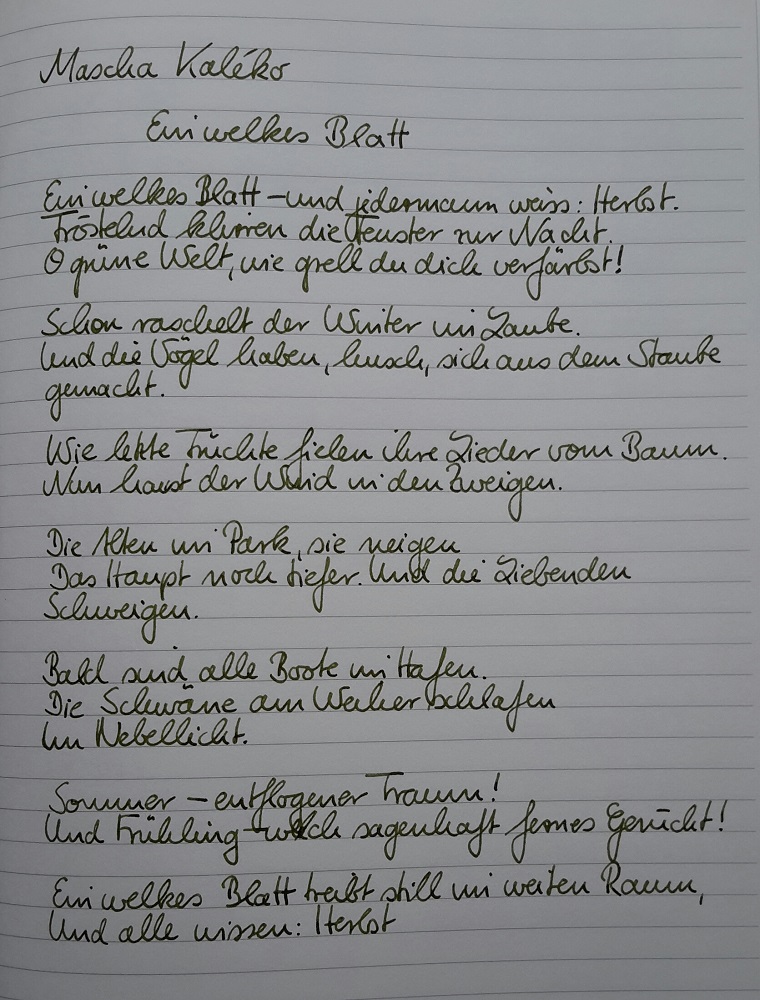 Mascha Kaléko
Ein welkes Blatt
Ein welkes Blatt – und jedermann weiss: Herbst.
Fröstelnd klirren die Fenster zur Nacht.
O grüne Welt, wie grell du dich verfärbst!
Schon raschelt der Winter im Laube.
Und die Vögel haben, husch, sich aus dem Staube
gemacht.
Wie letzte Früchte fielen ihre Lieder vom Baum.
Nun haust der Wind in den Zweigen.
Die Alten im Park, sie neigen
Das Haupt noch tiefer. Und die Liebenden
Schweigen.
Bald sind alle Boote im Hafen.
Die Schwäne am Weiher schlafen
Im Nebellicht.
Sommer – entflogener Traum!
Und Frühling – welch sagenhaft fernes Gerücht!
Ein welkes Blatt treibt still im weiten Raum,
Und alle wissen: Herbst